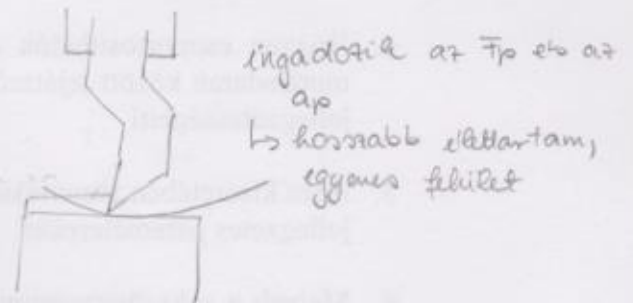 ingadozik az Fp és az
ap
↳ hosszabb élettartam,
egyenes felület